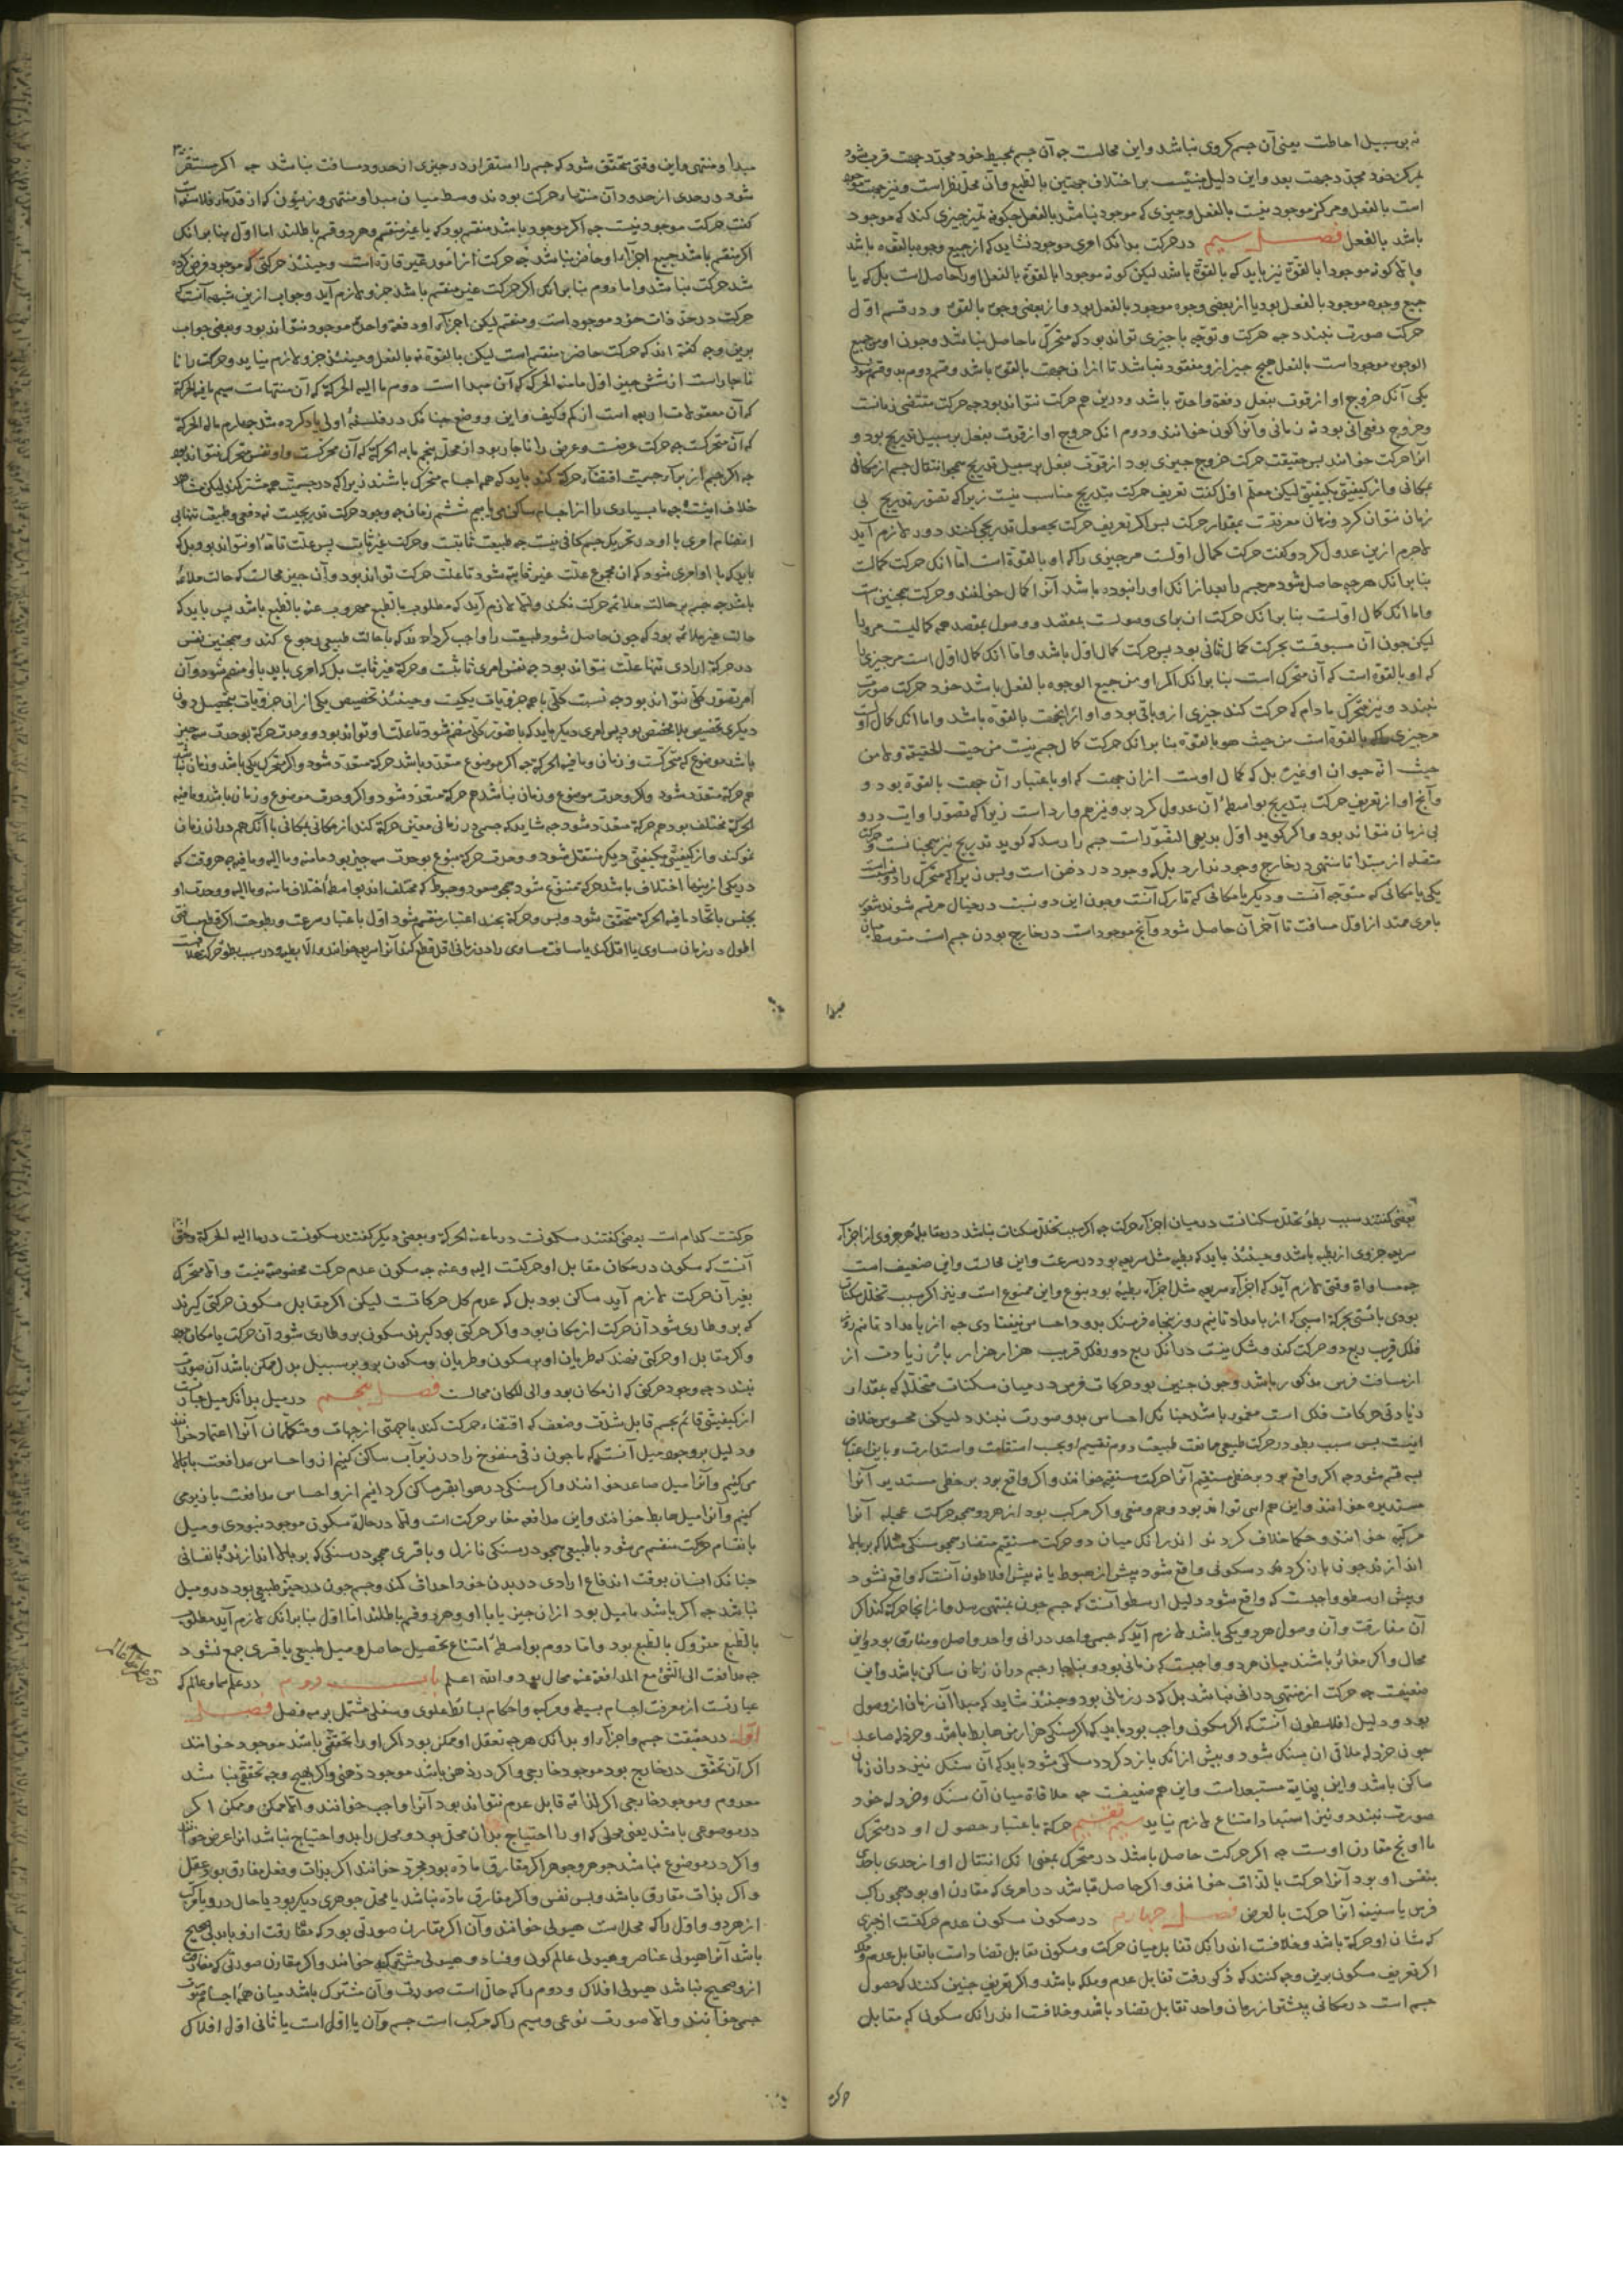 نه بر سبیل احاطت یعنی آن جسم کروی نباشد و این محالست چه آن جسم بمحیط خود محدد جهت قرب شود
بمرکز خود محدد جهت بعد و این دلیل مبنیست بر اختلاف جهتین بالطبع و آن محل نظر است و نیز جهت موجود
است بالفعل و مرکز موجود نیست بالفعل و چیزی که موجود نباشد بالفعل چگونه تمیز چیزی کند که موجود
باشد بالفعل فصل سیم در حرکت بدانک امری موجود نشاید که از جمیع وجوه بالقوه باشد
والا کونه موجودا بالقوة نیز باید که بالقوة باشد لیکن کونه موجودا بالقوة بالفعل او را حاصل است بل که یا
جمیع وجوه موجود بالفعل بود یا از بعضی وجوه موجود بالفعل بود و از بعضی وجوه بالقوة و در قسم اول
حرکت صورت نبندد چه حرکت و توجه با چیزی تواند بود که متحرک را حاصل نباشد و چون او من جمیع
الوجوه موجود است بالفعل هیچ چیز ازو مفقود نباشد تا از آن جهت بالقوة باشد و قسم دوم بدو قسم شود
یکی آنک خروج او از قوت بفعل دفعة واحدة باشد و درین هم حرکت نتواند بود چه حرکت مقتضی زمانست
و خروج دفعی آنی بود نه زمانی و آنرا کون خوانند و دوم آنک خروج او از قوت بفعل بر سبیل تدریج بود و
آنرا حرکت خوانند پس حقیقت حرکت خروج چیزی بود از قوت بفعل بر سبیل تدریج همچو انتقال جسم از مکانی
بمکانی و از کیفیتی بکیفیتی لیکن معلم اول گفت تعریف حرکت بتدریج مناسب نیست زیرا که تصور تدریج بی
زمان نتوان کرد و زمان معرفتست بمقدار حرکت پس اگر تعریف حرکت بحصول تدریجی کنند دور لازم آید
لاجرم ازین عدول کرد و گفت حرکت کمال اولست مر چیزی را که او بالقوة است اما آنک حرکت کمالست
بنا بر آنک هر چه حاصل شود مر جسم را بعد از آنک او را نبوده باشد آنرا کمال خوانند و حرکت همچنین است
و اما آنک کمال اولست بنا بر آنک حرکت از برای وصولست بمقصد و وصول بمقصد هم کمالیست مرو را
لیکن چون آن مسبوقست بحرکت کمال ثانی بود پس حرکت کمال اول باشد و اما آنک کمال اول است مر چیزی را
که او بالقوة است که آن متحرک است بنا بر آنک اگر او من جمیع الوجوه بالفعل باشد خود حرکت صورت
نبندد و نیز متحرک مادام که حرکت کند چیزی ازو باقی بود و او از آن جهت بالقوه باشد و اما آنک کمال اولست
مر چیزی را که بالقوة است من حیث هو بالقوة بنا بر آنک حرکت کمال جسم نیست من حیث الحقیقة ولا من
حیث انه حیوان او غیره بل که کمال اوست از آن جهت که او باعتبار آن جهت بالقوة بود و
و آنچ او از تعریف حرکت بتدریج بواسطۀ آن عدول کرد برو نیز هم وارد است زیرا که تصور اولیت درو
بی زمان نتواند بود و اگر گوید اول بدیهی التصور است جسم را رسد که گوید تدریج نیز همچنانست و حرکت
متصله از مبدا تا منتهی در خارج وجود ندارد بل که وجود در ذهن است و بس زیرا که متحرک را دو نسبت است
یکی با مکانی که متوجه آنست و دیگر با مکانی که تارک آنست و چون این دو نسبت در خیال مرتسم شوند شعور
بامری ممتد از اول مسافت تا آخر آن حاصل شود و آنچ موجود است در خارج بودن جسم است متوسط میان
مبدا
مبدأ و منتهی و این وقتی متحقق شود که جسم را استقرار در جزئی از حدود مسافت نباشد چه اگر مستقر
شود در حدی از حدود آن منتهاء حرکت بود نه وسط میان مبدا و منتهی و زینون که از قدماء فلاسفه است
گفت حرکت موجود نیست چه اگر موجود باشد منقسم بود که یا غیر منقسم و هر دو قسم باطلند اما اول بنا بر آنک
اگر منقسم باشد جمیع اجزاء او حاضر نباشد چه حرکت از امور غیر قاره است و حینئذ حرکتی که موجود فرض کرده
شد حرکت نباشد و اما دوم بنا بر آنک اگر حرکت غیر منقسم باشد جزو لازم آید و جواب ازین شبهه آنست که
حرکت در حد ذات خود موجود است و منقسم لیکن اجزاء او دفعة واحدة موجود نتواند بود و بعضی جواب
برین وجه گفته اند که حرکت حاضر منقسم است لیکن بالقوة نه بالفعل و حینئذ جزو لازم نیاید و حرکت را نا
ناچار است از شش چیز اول ما منه الحرکة که آن مبدا است دوم ما الیه الحرکة که آن منتها ست سیم ما فیه الحرکة
که آن مقولات اربعه است از کم و کیف و این و وضع چنانک در فلسفۀ اولی یاد کرده شد چهارم ما له الحرکة
که آن متحرکست چه حرکت عرضست و عرض را ناچار بود از محل پنجم ما به الحرکة که آن محرکست و او نفس متحرک نتواند بود
چه اگر جسم از برای جسمیت اقتضاء حرکة کند باید که همه اجسام متحرک باشند زیرا که در جسمیت همه مشترکند لیکن مشاهد
خلاف اینست چه ما بسیاری را از اجسام ساکن می یابیم ششم زمان چه وجود حرکت تدریجیست نه دفعی و طبیعت تنها بی
انضمام امری با او در تحریک جسم کافی نیست چه طبیعت ثابتست و حرکت غیر ثابت پس علت تامۀ او نتواند بود بل که
باید که با او امری شود که آن مجموع علت غیر ثابته شود تا علت حرکت تواند بود و آن چیز محالست که حالت ملائمه
باشد چه جسم بر حالت ملائم حرکت نکند والا لازم آید که مطلوب بالطبع مهروب عنه بالطبع باشد پس باید که
حالت غیر ملائمه بود که چون حاصل شود طبیعت را واجب گرداند که با حالت طبیعی رجوع کند و همچنین نفس
در حرکة ارادی تنها علت نتواند بود چه نفس امری ثابتست و حرکة غیر ثابت بل که امری باید با او منضم شود و آن
امر تصور کلی نتواند بود چه نسبت کلی با همه جزویات یکیست و حینئذ تخصیص یکی از آن جزویات بتحصیل دون
دیگری تخصیص بلا مخصص بود پس امری دیگر باید که با تصور کلی منضم شود تا علت او تواند بود و وحدت حرکة بوحدت سه چیز
باشد موضوع که متحرکست و زمان و ما فیه الحرکة چه اگر موضوع متعدد باشد حرکة متعدد شود و اگر متحرک یکی باشد و زمان نباشد
هم حرکة متعدد شود و اگر وحدت موضوع و زمان نباشد هم حرکة متعدد شود و اگر وحدت موضوع و زمان باشد و ما فیه
الحرکة مختلف بود هم حرکة متعدد شود چه شاید که جسمی در زمانی معین حرکة کند از مکانی بمکانی با آنک هم در آن زمان
نمو کند و از کیفیتی بکیفیتی دیگر منتقل شود و وحدت حرکة بنوع بوحدت سه چیز بود ما منه و ما الیه و ما فیه چه هر وقت که
در یکی از ینها اختلاف باشد حرکة متنوع شود همچو صعود و هبوط که مختلف اند بواسطۀ اختلاف ما منه و ما الیه و وحدت او
بجنس باتحاد ما فیه الحرکة متحقق شود و بس و حرکة بچند اعتبار منقسم شود اول باعتبار سرعت و بطو چه اگر قطع مسافتی
اطول در زمان مساوی یا اقل کند یا مسافت مساوی را در زمانی اقل قطع کند آنرا سریعه خوانند والا بطیئه و در سبب بطؤ حرکت خلافست
بعضی گفتند سبب بطؤ تخلل سکناتست در میان اجزاء حرکت چه اگر سبب تخلل سکنات نباشد در مقابلۀ هر جزوی از اجزاء
سریعه جزوی از بطیئه باشد و حینئذ باید که بطیئه مثل سریعه بود در سرعت و این محالست و این ضعیف است
چه مساواة وقتی لازم آید که اجزاء سریعه مثل اجزاء بطیئه بود بنوع و این ممنوع است و نیز اگر سبب تخلل سکنات
بودی بایستی بحرکة اسبی که از بامداد تا نیم روز پنجاه فرسنگ برود احساس نیفتادی چه از بامداد تا نیم روز
فلک قریب ربع دور حرکت کند و شک نیست در آنک ربع دور فلک قریب هزار هزار بار زیادت از
از مسافت فرس مذکور باشد و چون چنین بود حرکات فرس در میان سکنات متخلله که بمقدار
زیادتی حرکات فلک است مغمور باشد چنانک احساس بدو صورت نبندد لیکن محسوس خلاف
اینست پس سبب بطو در حرکت طبیعی ممانعت طبیعت دوم تقسیم او بحسب استقامت و استدارت و باین اعتبار
بسه قسم شود چه اگر واقع بود بر خطی مستقیم آنرا حرکت مستقیم خوانند و اگر واقع بود بر خطی مستدیر آنرا
مستدیره خوانند و این هم اسی تواند بود و هم وضعی و اگر مرکب بود از هر دو همچو حرکت عجله آنرا
مرکبه خوانند و حکما خلاف کرده اند در آنک میان دو حرکت مستقیم متضاد همچو سنگی مثلا که بر بالا
اندازند چون باز گردد سکونی واقع شود پیش از هبوط یا نه پیش افلاطون آنست که واقع نشود
و پیش ارسطو واجبست که واقع شود دلیل ارسطو آنست که جسم چون بمنتهی رسد و از آنجا حرکة کند اگر
آن مفارقت و آن وصول هر دو یکی باشد لازم آید که جسمی واحد در آنی واحد واصل و مفارق بود و این
محال و اگر مغایر باشند میان هر دو واجبست که زمانی بود و بناچار جسم در آن زمان ساکن باشد و این
ضعیفست چه حرکت از منتهی در آنی نباشد بل که در زمانی بود و حینئذ شاید که مبداء آن زمان از وصول
بود و دلیل افلاطون آنست که اگر سکون واجب بود باید که اگر سنگی هزار منی هابط باشد و خردلۀ صاعد
چون خردله ملاقی آن سنگ شود و پیش از آنک باز گردد ساکن شود باید که آن سنگ نیز در آن زمان
ساکن باشد و این بغایت مستبعد است و این هم ضعیفست چه ملاقاة میان آن سنگ و خردله خود
صورت نبندد و نیز استبعاد امتناع لازم نیاید سیم تقسیم حرکة باعتبار حصول او در متحرک
ما او نج مقارن اوست چه اگر حرکت حاصل باشد در متحرک بمعنی آنک انتقال او از حدی باحدی
بنفس او بود آنرا حرکت بالذات خوانند و اگر حاصل نباشد در امری که مقارن او بود همچو راکب
فرس یا سفینه آنرا حرکت بالعرض فصل چهارم در سکون سکون عدم حرکتست از چیزی
که شان او حرکة باشد و خلافست اندر آنک تقابل میان حرکت و سکون تقابل تضاد است یا تقابل عدم و ملکه
اگر تعریف سکون برین وجه کنند که ذکر رفت تقابل عدم و ملکه باشد و اگر تعریف چنین کنند که حصول
جسم است در مکانی بیشتر از زمان واحد تقابل تضاد باشد و خلافست اندر آنک سکونی که مقابل
حرکت
حرکتست کدام است بعضی گفتند سکونست در ما عنه الحرکة و بعضی دیگر گفتند سکونست در ما الیه الحرکة و حق
آنست که سکون در مکان مقابل او حرکتست الیه و عنه چه سکون عدم حرکت مخصوصه نیست والا متحرک
بغیر آن حرکت لازم آید ساکن بود بل که عدم کل حرکاتست لیکن اگر مقابل سکون حرکتی گیرند
که برو طاری شود آن حرکت از مکان بود و اگر حرکتی بود گیرند سکون برو طاری شود آن حرکت با مکان بود
و اگر مقابل او حرکتی نهند که طریان او بر سکون و طریان سکون برو بر سبیل بدل ممکن باشد آن صورت
نبندد چه وجود حرکتی که از مکان بود و الی المکان محالست فصل پنجم در میل بدانک میل عبارتست
از کیفیتی قائم بجسم قابل شدت و ضعف که اقتضاء حرکت کند باجهتی از جهات و متکلمان آنرا اعتماد خوانند
و دلیل بر وجود میل آنست که ما چون زقی منفوخ را در زیر آب ساکن کنیم ازو احساس مدافعت با بالا
می کنیم و آنرا میل صاعد خوانند و اگر سنگی در هوا بقسر ساکن گردانیم ازو احساس مدافعت با زیر می
کنیم و آنرا میل هابط خوانند و این مدافعه مغایر حرکت است والا در حالة سکون موجود نبودی و میل
بانقسام حرکت منقسم می شود با طبیعی همچو در سنگی نازل و با قسری همچو در سنگی که بر بالا اندازند و با نفسانی
چنانک انسان بوقت اندفاع ارادی در بدن خود احداث کند و جسم چون در حیز طبیعی بود درو میل
نباشد چه اگر باشد ما میل بود از آن حیز یا با او و هر دو قسم باطلند اما اول بنا بر آنک لازم آید مطلوب
بالطبع متروک بالطبع بود و اما دوم بواسطۀ امتناع تحصیل حاصل و میل طبیعی با قسری جمع نشود
چه مدافعت الی الشئ مع المدافعة عنه محال بود والله اعلم باب دوم در علم سماء و عالم که
عبارتست از معرفت اجسام بسیطه و مرکبه و احکام بسائط علوی و سفلی مشتمل بر سه فصل فصل
اول در حقیقت جسم و اجزاء او بدانک هر چه تعقل او ممکن بود اگر او را تحققی باشد موجود خوانند
اگر آن تحقق در خارج بود موجود خارجی و اگر در ذهن باشد موجود ذهنی و اگر بهیچ وجه تحققی نباشد
معدوم و موجود خارجی اگر لذاته قابل عدم نتواند بود آنرا واجب خوانند والا ممکن و ممکن اگر
در موضوعی باشد یعنی محلی که او را احتیاج بدان محل بود و محل را بدو احتیاج نباشد آنرا عرض خوانند
و اگر در موضوع نباشد جوهر و جوهر اگر مفارق ماده بود مجرد خوانند اگر بذات و فعل مفارق بود عقل
و اگر بذات مفارق باشد و بس نفس و اگر مفارق ماده نباشد یا محل جوهری دیگر بود یا حال درو یا مرکب
از هر دو و اول را که محل است هیولی خوانند و آن اگر مقارن صورتی بود که مفارقت ازو با بدلی صحیح
باشد آنرا هیولی عناصر و هیولی عالم کون و فساد و هیولی مشترکه خوانند و اگر مقارن صورتی که مفارقت
ازو صحیح نباشد هیولی افلاک و دوم را که حال است صورت و آن مشترک باشد میان همه اجسام صورت
جسمی خوانند والا صورت نوعی و سیم را که مرکب است جسم و آن یا اول است یا ثانی اول افلاک